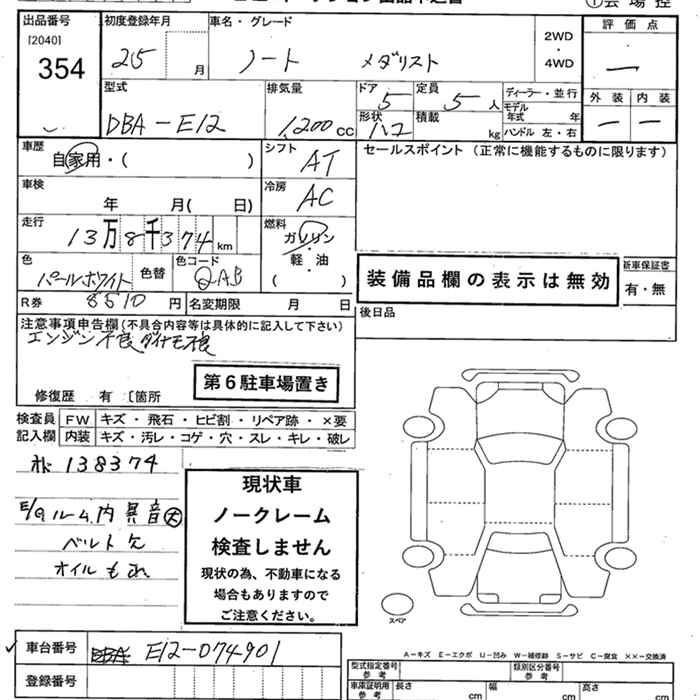 出品番号 初度登録年月 車名・グレード 評価点
[2040]
354
25 月 ノート メダリスト
2WD
・
4WD
一
型式 排気量 ドア 定員 ディーラー・並行 外装 内装
DBA-E12 1,200 CC 5 5 人
モデル年式 年
形状 ハコ 積載 kg ハンドル 左・右 一 一
車歴 シフト セールスポイント (正常に機能するものに限ります)
自家用・( ) AT
車検 冷房
年 月( 日) AC
走行 燃料
13万8千374km ガソリン
・
軽・油
色 色替 色コード
パールホワイト QAB ( )
装備品欄の表示は無効
新車保証書
有・無
R券 8510 円 名変期限 月 日
後日品
注意事項申告欄(不具合内容等は具体的に記入して下さい)
エンジン不良ダイナモ不良
第6駐車場置き
修復歴 有 [箇所
検査員 FW キズ・飛石・ヒビ割・リペア跡・×要
記入欄 内装 キズ・汚レ・コゲ・穴・スレ・キレ・破レ
138374
E/Gルーム内異音大
ベルト欠
オイルもれ
現状車
ノークレーム
検査しません
現状の為、不動車になる
場合もありますので
ご注意ください。
スペア
A-キズ E-エクボ U-凹み W-補修跡 S-サビ C-腐食 ××-交換済
車台番号 E12-074901
登録番号
型式指定番号 参考 類別区分番号 参考
車庫証明用 参考 長さ cm 幅 cm 高さ cm